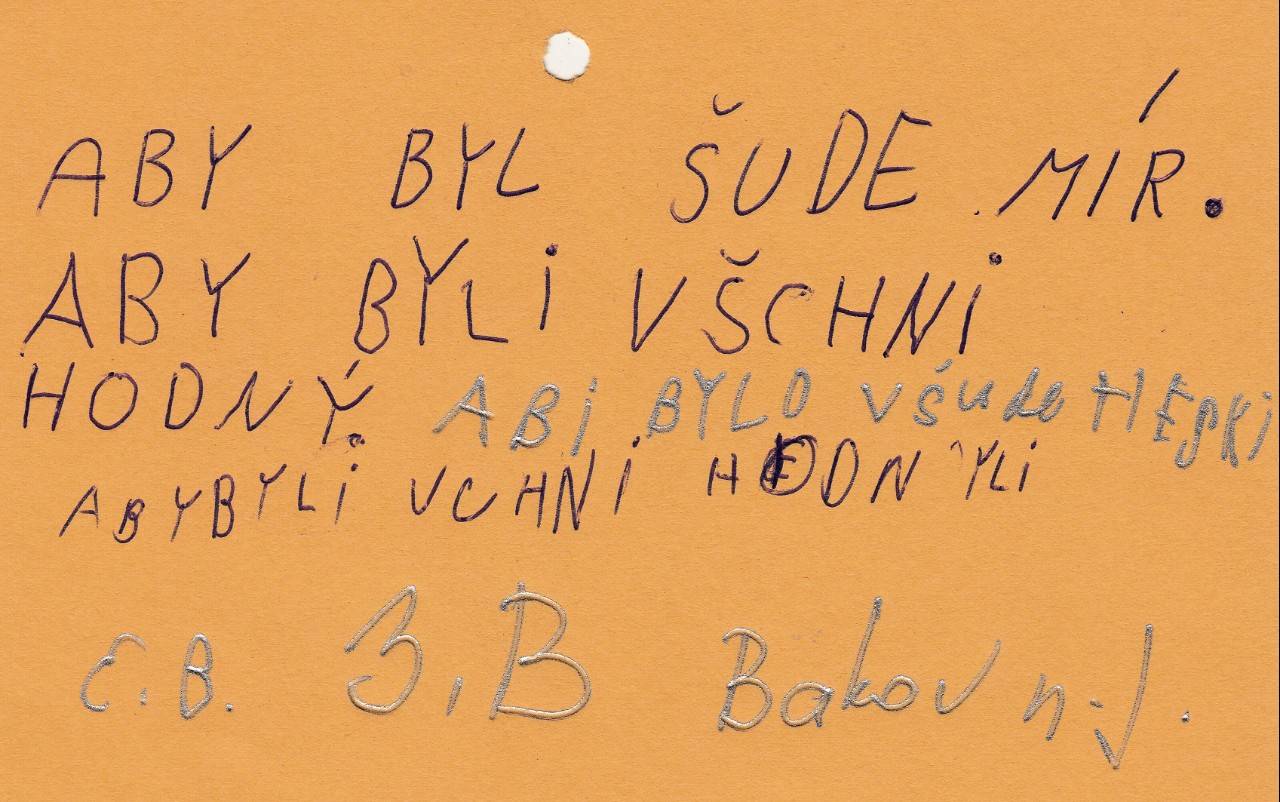 ABY BYL ŠUDE MÍR.
ABY BYLi VŠCHNi
HODNÝ. ABi BYLO všude HESKi
ABYBYLi VCHNi HODNYLi
C.B. 3.B Bakov n.J.